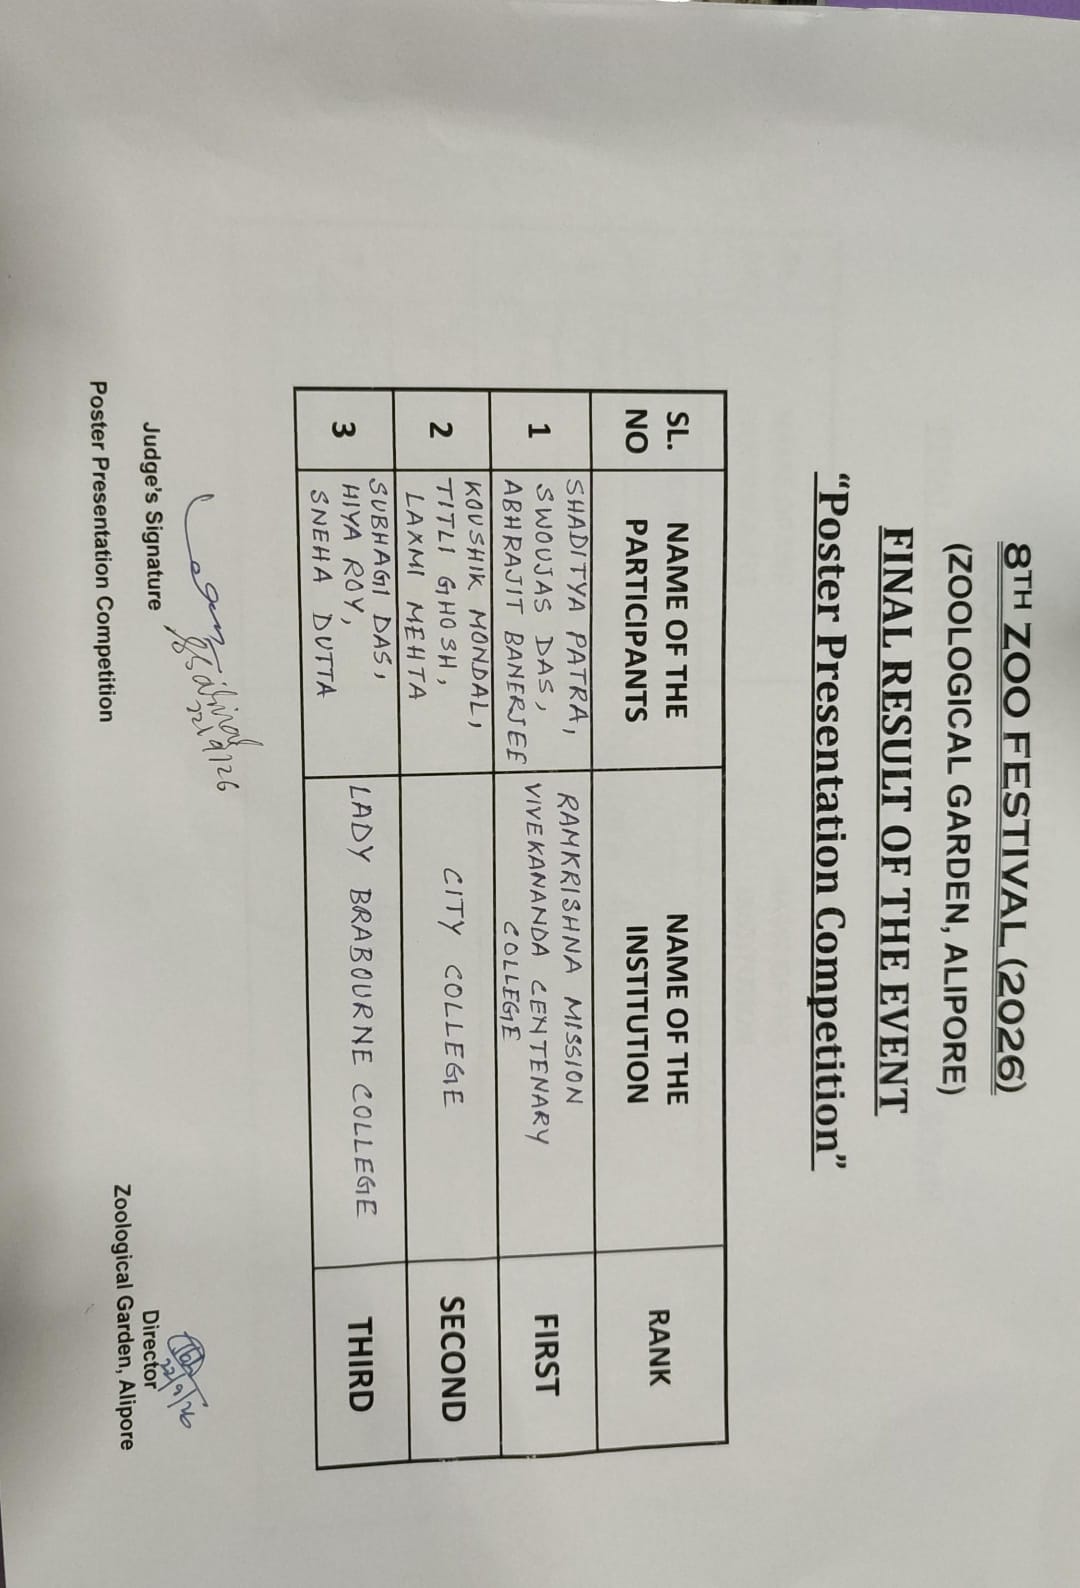 8TH ZOO FESTIVAL (2026)
(ZOOLOGICAL GARDEN, ALIPORE)
FINAL RESULT OF THE EVENT
“Poster Presentation Competition”
SL. NO
NAME OF THE PARTICIPANTS
NAME OF THE INSTITUTION
RANK
1
SHADITYA PATRA,
SWOUJAS DAS,
ABHRAJIT BANERJEE
RAMKRISHNA MISSION
VIVEKANANDA CENTENARY
COLLEGE
FIRST
2
KOUSHIK MONDAL,
TITLI GHOSH,
LAXMI MEHTA
CITY COLLEGE
SECOND
3
SUBHAGI DAS,
HIYA ROY,
SNEHA DUTTA
LADY BRABOURNE COLLEGE
THIRD
22/9/26
Judge's Signature
Poster Presentation Competition
22/9/26
Director
Zoological Garden, Alipore